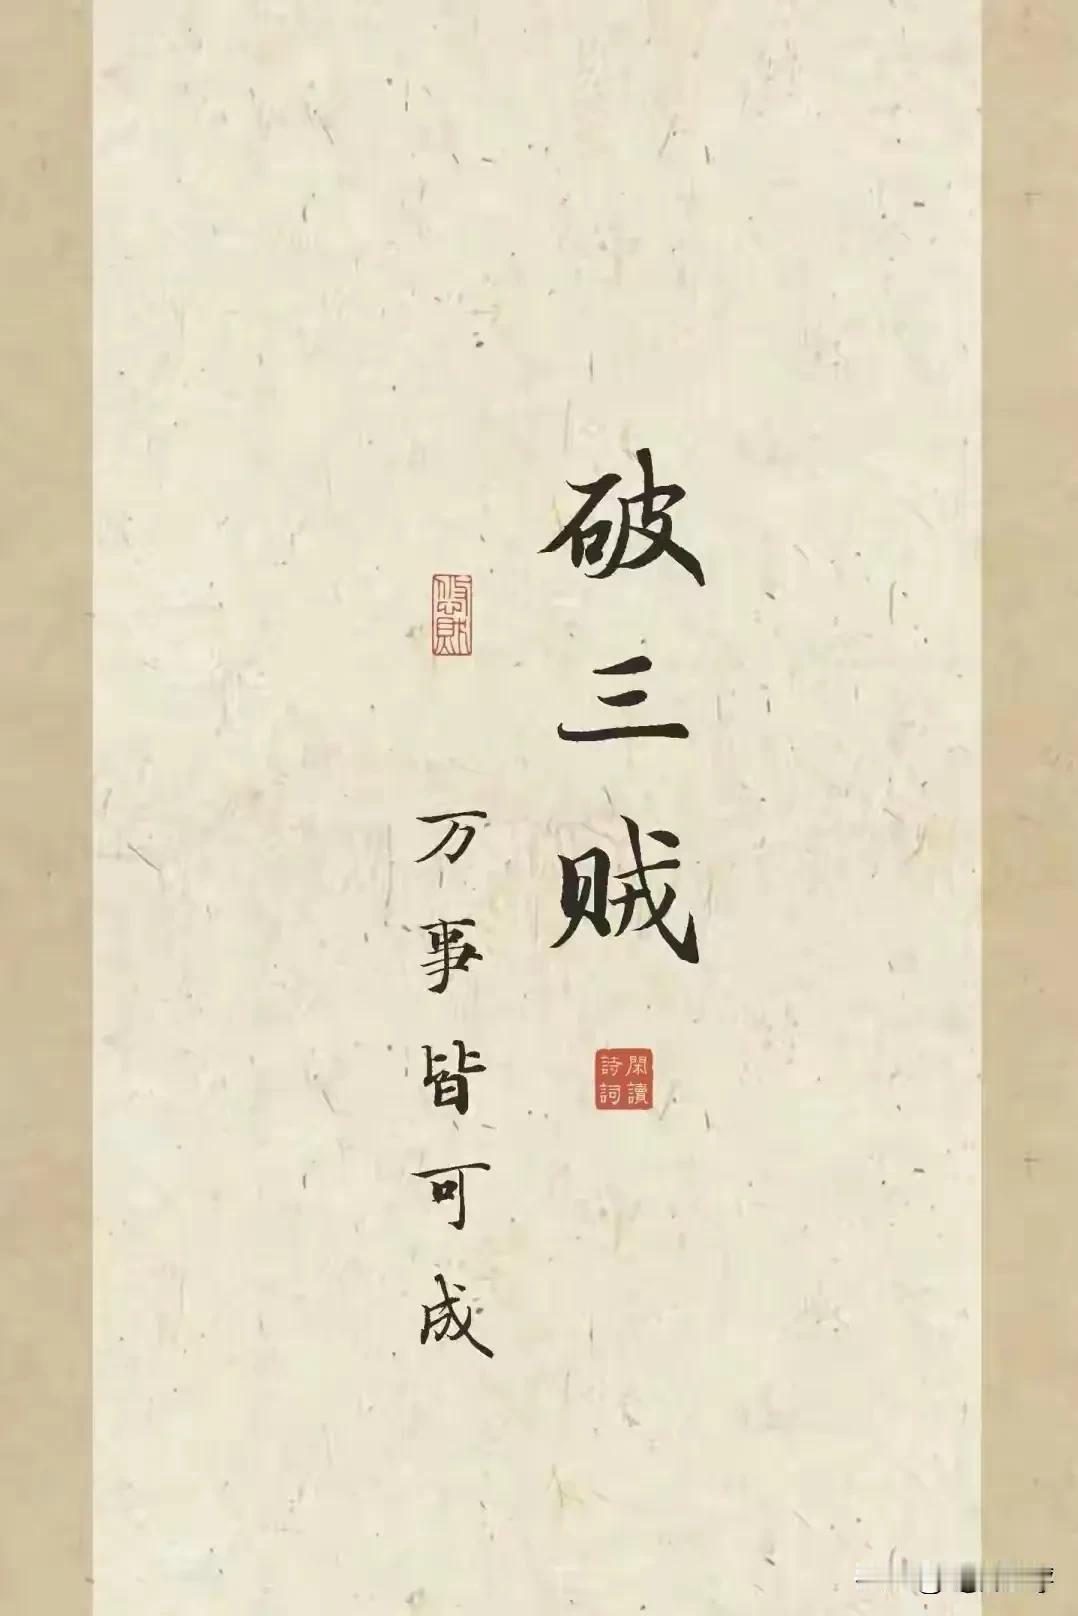 破三贼
閑讀
詩詞
万事皆可成